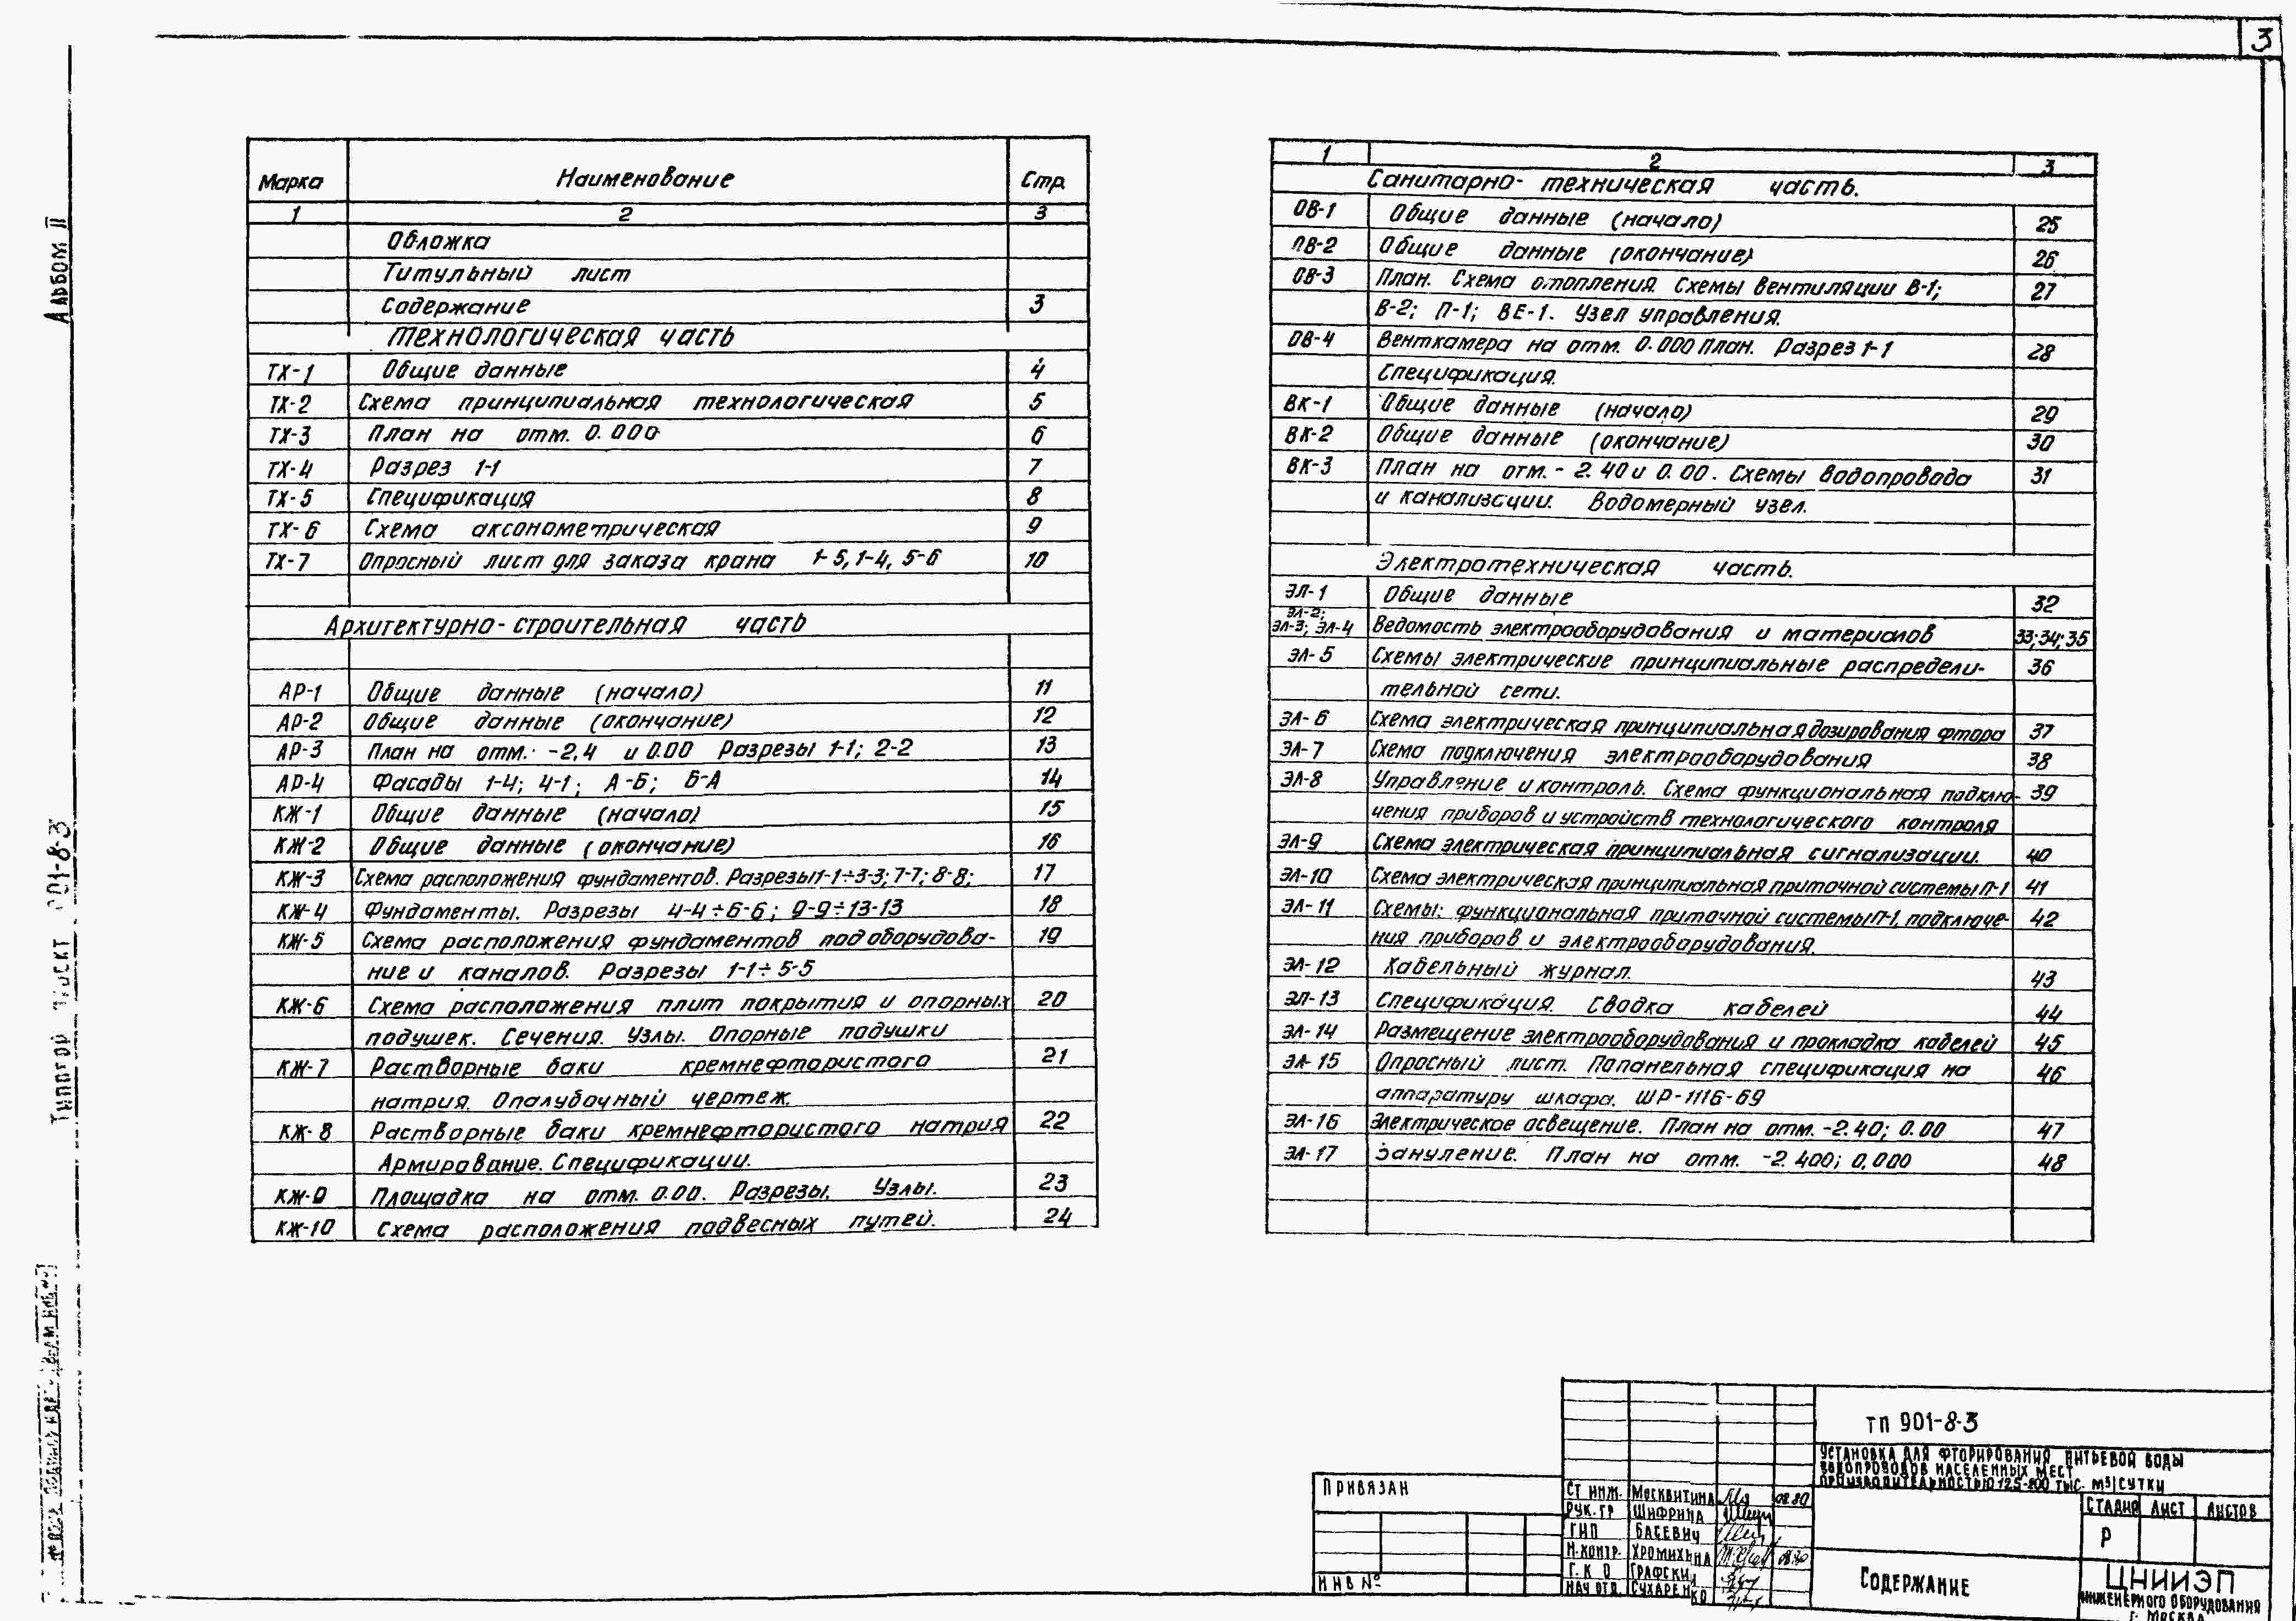 3
Альбом II
Типовой проект 901-8-3
Марка Наименование Стр.
1 2 3
Обложка
Титульный лист
Содержание 3
Технологическая часть
ТХ-1 Общие данные 4
ТХ-2 Схема принципиальная технологическая 5
ТХ-3 План на отм. 0.000 6
ТХ-4 Разрез 1-1 7
ТХ-5 Спецификация 8
ТХ-6 Схема аксонометрическая 9
ТХ-7 Опросный лист для заказа крана 1-5, 1-4, 5-6 10
Архитектурно-строительная часть
АР-1 Общие данные (начало) 11
АР-2 Общие данные (окончание) 12
АР-3 План на отм. -2,4 и 0.00 Разрезы 1-1; 2-2 13
АР-4 Фасады 1-4; 4-1; А-Б; Б-А 14
КЖ-1 Общие данные (начало) 15
КЖ-2 Общие данные (окончание) 16
КЖ-3 Схема расположения фундаментов. Разрезы 1-1÷3-3; 7-7; 8-8; 17
КЖ-4 Фундаменты. Разрезы 4-4÷6-6; 9-9÷13-13 18
КЖ-5 Схема расположения фундаментов под оборудова- 19
ние и каналов. Разрезы 1-1÷5-5
КЖ-6 Схема расположения плит покрытия и опорных 20
подушек. Сечения. Узлы. Опорные подушки
КЖ-7 Растворные баки кремнефтористого 21
натрия. Опалубочный чертеж.
КЖ-8 Растворные баки кремнефтористого натрия 22
Армирование. Спецификации.
КЖ-9 Площадка на отм. 0.00. Разрезы. Узлы. 23
КЖ-10 Схема расположения подвесных путей. 24
1 2 3
Санитарно-техническая часть.
ОВ-1 Общие данные (начало) 25
ОВ-2 Общие данные (окончание) 26
ОВ-3 План. Схема отопления. Схемы вентиляции В-1; 27
В-2; П-1; ВЕ-1. Узел управления.
ОВ-4 Венткамера на отм. 0.000 план. Разрез 1-1 28
Спецификация.
ВК-1 Общие данные (начало) 29
ВК-2 Общие данные (окончание) 30
ВК-3 План на отм. -2.40 и 0.00. Схемы водопровода 31
и канализации. Водомерный узел.
Электротехническая часть.
ЭЛ-1 Общие данные 32
ЭЛ-2;
ЭЛ-3; ЭЛ-4 Ведомость электрооборудования и материалов 33; 34; 35
ЭЛ-5 Схемы электрические принципиальные распредели- 36
тельной сети.
ЭЛ-6 Схема электрическая принципиальная дозирования фтора 37
ЭЛ-7 Схема подключения электрооборудования 38
ЭЛ-8 Управление и контроль. Схема функциональная подклю- 39
чения приборов и устройств технологического контроля
ЭЛ-9 Схема электрическая принципиальная сигнализации. 40
ЭЛ-10 Схема электрическая принципиальная приточной системы П-1 41
ЭЛ-11 Схемы: функциональная приточной системы П-1, подключе- 42
ния приборов и электрооборудования.
ЭЛ-12 Кабельный журнал. 43
ЭЛ-13 Спецификация. Сводка кабелей 44
ЭЛ-14 Размещение электрооборудования и прокладка кабелей 45
ЭЛ-15 Опросный лист. Попанельная спецификация на 46
аппаратуру шкафа. ШР-1116-69
ЭЛ-16 Электрическое освещение. План на отм. -2.40; 0.00 47
ЭЛ-17 Зануление. План на отм. -2.400; 0,000 48
ТП 901-8-3
Установка для фторирования питьевой воды
водопроводов населенных мест
производительностью 12.5-800 тыс. м3/сутки
Привязан
Инв №
Ст инж. Москвитина 08.80
Рук. гр Шифрина
ГИП Басевич
Н. контр. Хромихина 08.80
Г. К О Графский
Нач отд. Сухаренко
Стадия Лист Листов
Р
Содержание
ЦНИИЭП
инженерного оборудования
г. Москва